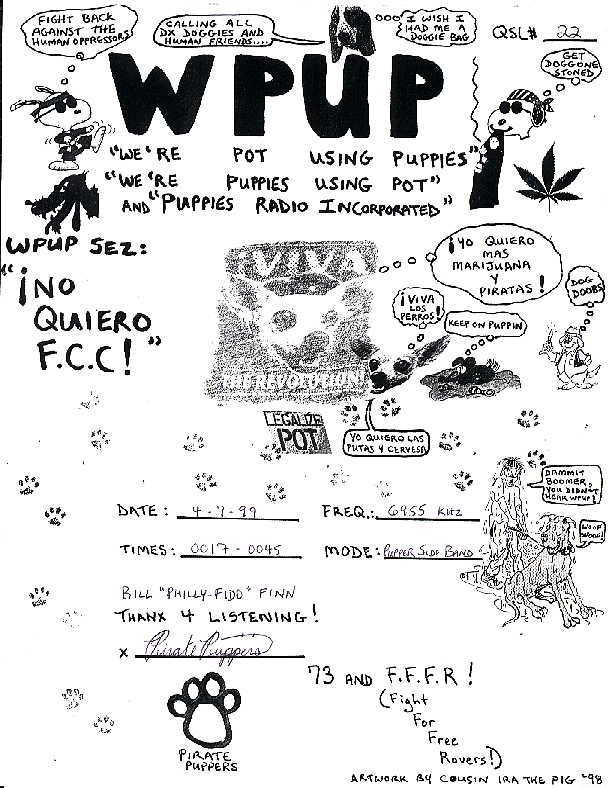 FIGHT BACK
AGAINST THE
HUMAN OPPRESSORS
CALLING ALL
DX DOGGIES AND
HUMAN FRIENDS....
I WISH I
HAD ME A
DOGGIE BAG
QSL# 22
GET
DOGGONE
STONED
WPUP
"WE'RE POT USING PUPPIES"
"WE'RE PUPPIES USING POT"
AND "PUPPIES RADIO INCORPORATED"
WPUP SEZ:
"¡NO
QUIERO
F.C.C!"
¡VIVA
THE REVOLUTION!
¡YO QUIERO
MAS
MARIJUANA
Y
PIRATAS!
¡VIVA
LOS
PERROS!
KEEP ON PUPPIN
DOG
DOOBS
LEGALIZE
POT
YO QUIERO LAS
PUTAS Y CERVESA
DAMMIT
BOOMER,
YOU DIDN'T
HEAR WPUP!
WOOF
WOOF!
DATE: 4-7-99 FREQ.: 6955 KHZ
TIMES: 0017-0045 MODE: PUPPER SIDE BAND
BILL "PHILLY-FIDO" FINN
THANX 4 LISTENING!
X Pirate Puppers
73 AND F.F.F.R!
(Fight
For
Free
Rovers!)
PIRATE
PUPPERS
ARTWORK BY COUSIN IRA THE PIG '98